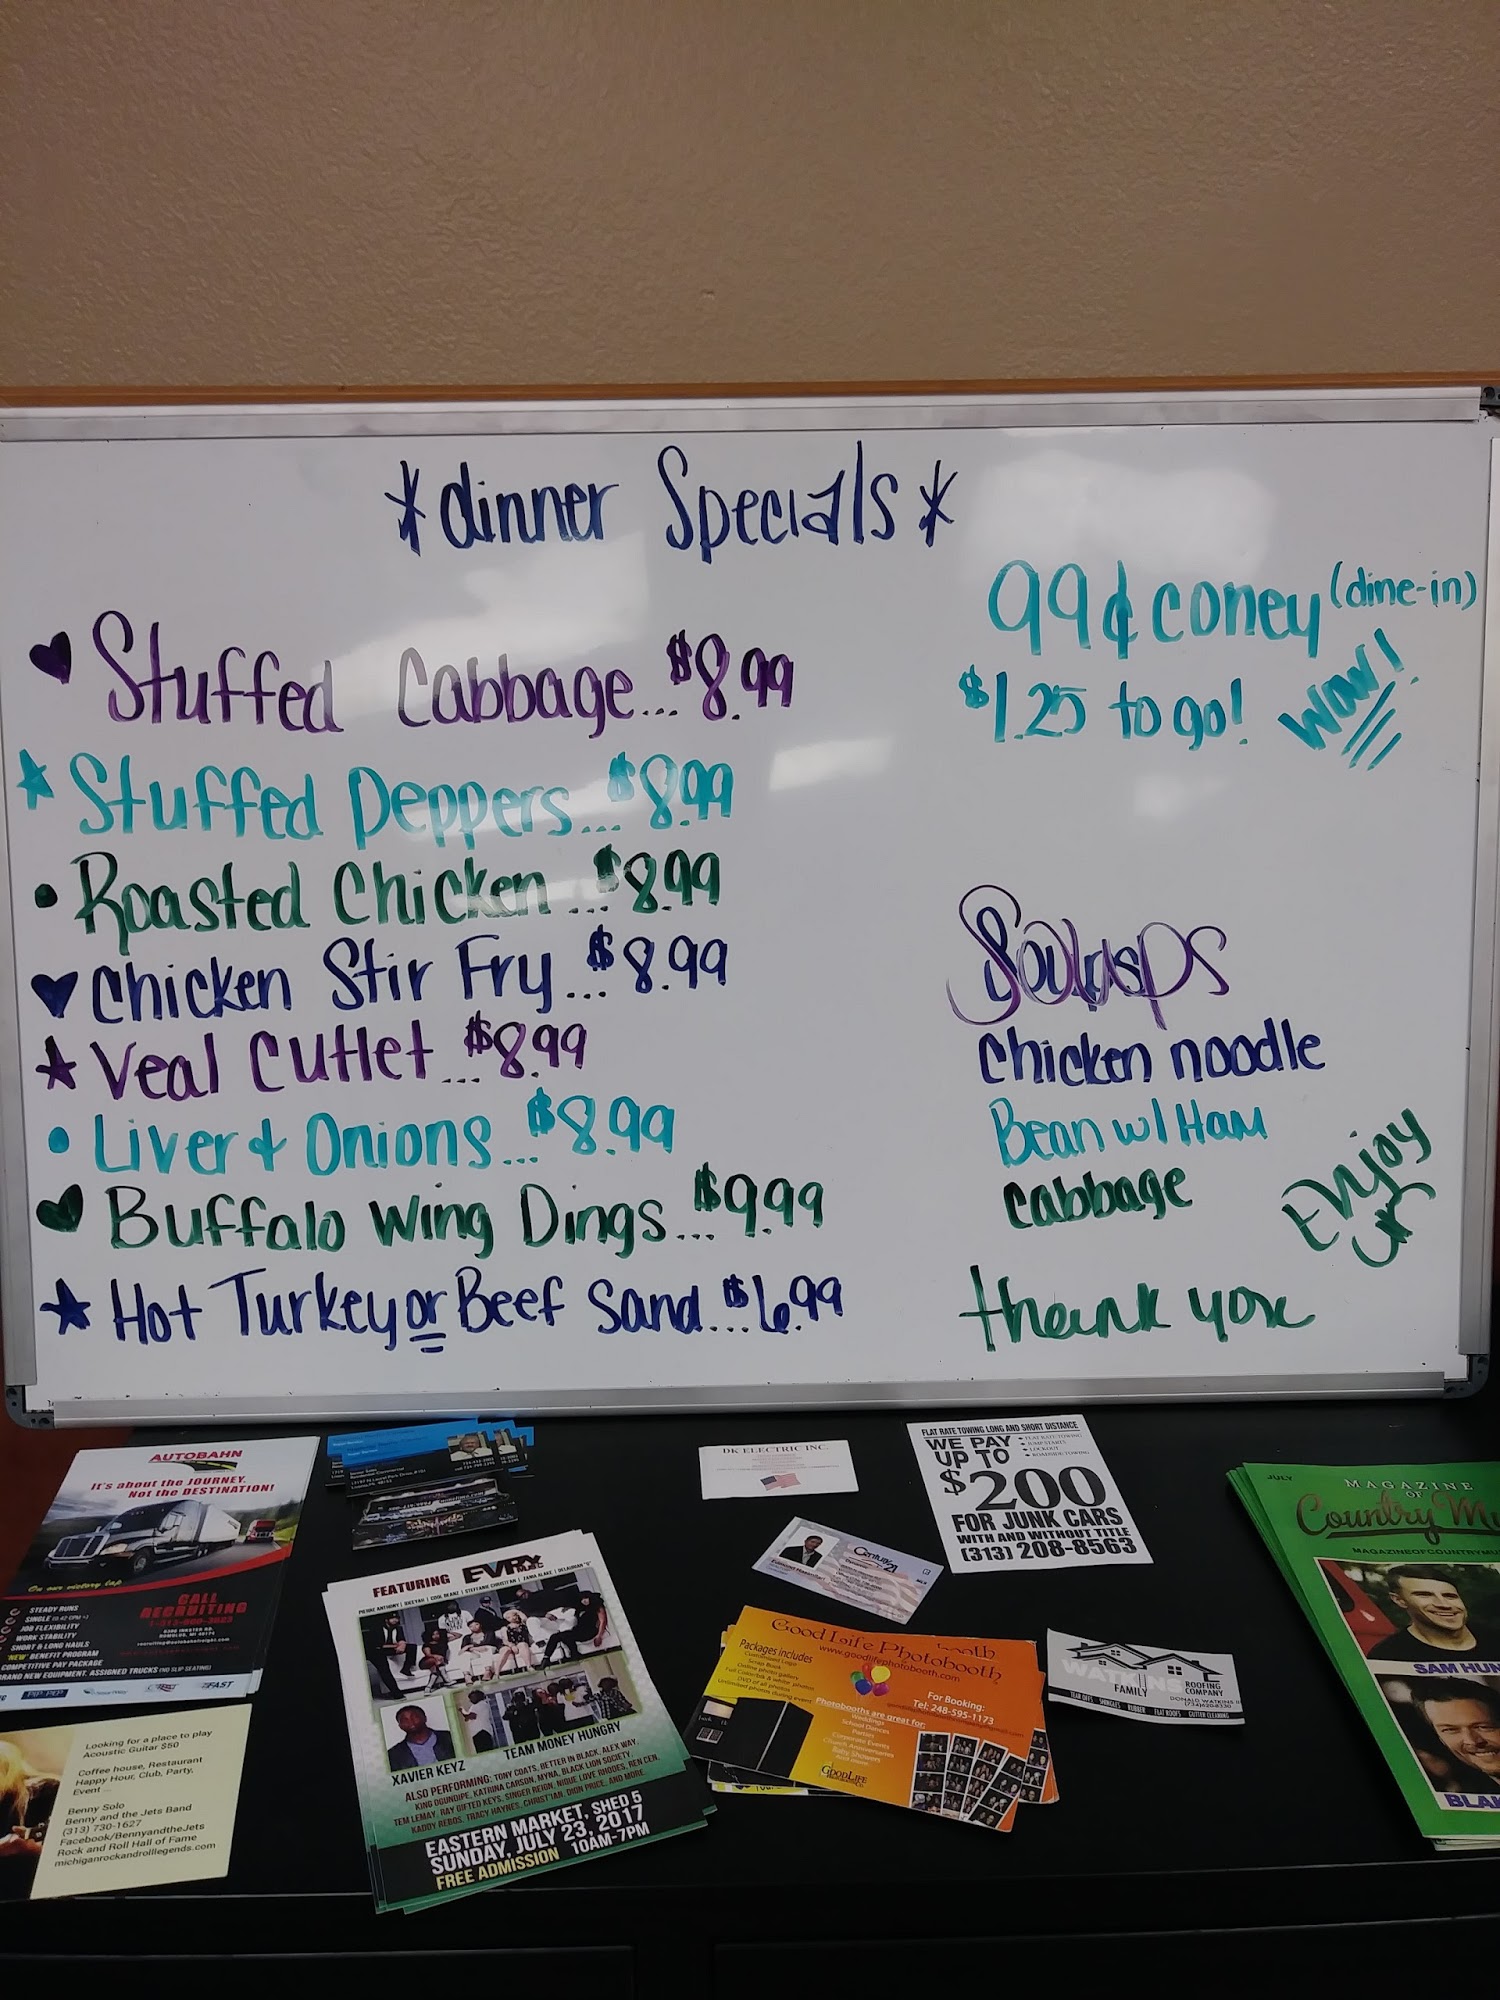 *dinner Specials*
99¢ coney (dine-in)
$1.25 to go! WOW!
Stuffed Cabbage...$8.99
Stuffed Peppers...$8.99
Roasted Chicken...$8.99
Chicken Stir Fry...$8.99
Veal Cutlet...$8.99
Liver & Onions...$8.99
Buffalo Wing Dings...$9.99
Hot Turkey or Beef Sand...$6.99
Soups
Chicken noodle
Bean w/ Ham
Cabbage
Enjoy
thank you
AUTOBAHN
It's about the JOURNEY.
Not the DESTINATION!
On our victory lap
CALL
RECRUITING
STEADY RUNS
JOB FLEXIBILITY
WORK STABILITY
SHORT & LONG HAULS
'NEW' BENEFIT PROGRAM
COMPETITIVE PAY PACKAGE
BRAND NEW EQUIPMENT. ASSIGNED TRUCKS (NO SLIP SEATING)
Looking for a place to play
Acoustic Guitar $50
Coffee house, Restaurant
Happy Hour, Club, Party,
Event
Benny Solo
Benny and the Jets Band
(313) 730-1627
Facebook/BennyandtheJets
Rock and Roll Hall of Fame
michiganrockandrolllegends.com
FEATURING EVRY
XAVIER KEYZ
TEAM MONEY HUNGRY
ALSO PERFORMING: TONY COATS, BETTER IN BLACK, ALEX WAY,
KING OGUNDIPE, KATRINA CARSON, MYNA, BLACK LION SOCIETY,
TEM LEMAY, RAY GIFTED KEYS, SINGER REIGN, NIQUE LOVE RHODES, REN CEN,
KADDY REBOS, TRACY HAYNES, CHRIST'IAN, DION PRICE, AND MORE
EASTERN MARKET, SHED 5
SUNDAY, JULY 23, 2017
FREE ADMISSION 10AM-7PM
DK ELECTRIC INC.
FLAT RATE TOWING LONG AND SHORT DISTANCE
WE PAY
UP TO
$200
FOR JUNK CARS
WITH AND WITHOUT TITLE
(313) 208-8563
Century 21
GOOD LIFE PHOTOBOOTH
www.goodlifephotobooth.com
Packages includes
For Booking:
Tel: 248-595-1173
Photobooths are great for:
Weddings
School Dances
Parties
Corporate Events
Church Anniversaries
Baby Showers
GOODLIFE
WATKINS
FAMILY
ROOFING
COMPANY
DONALD WATKINS II
TEAR OFFS SHINGLES RUBBER FLAT ROOFS GUTTER CLEANING
JULY
MAGAZINE
OF
Country Mu
MAGAZINEOFCOUNTRYMU
SAM HUN
BLAK